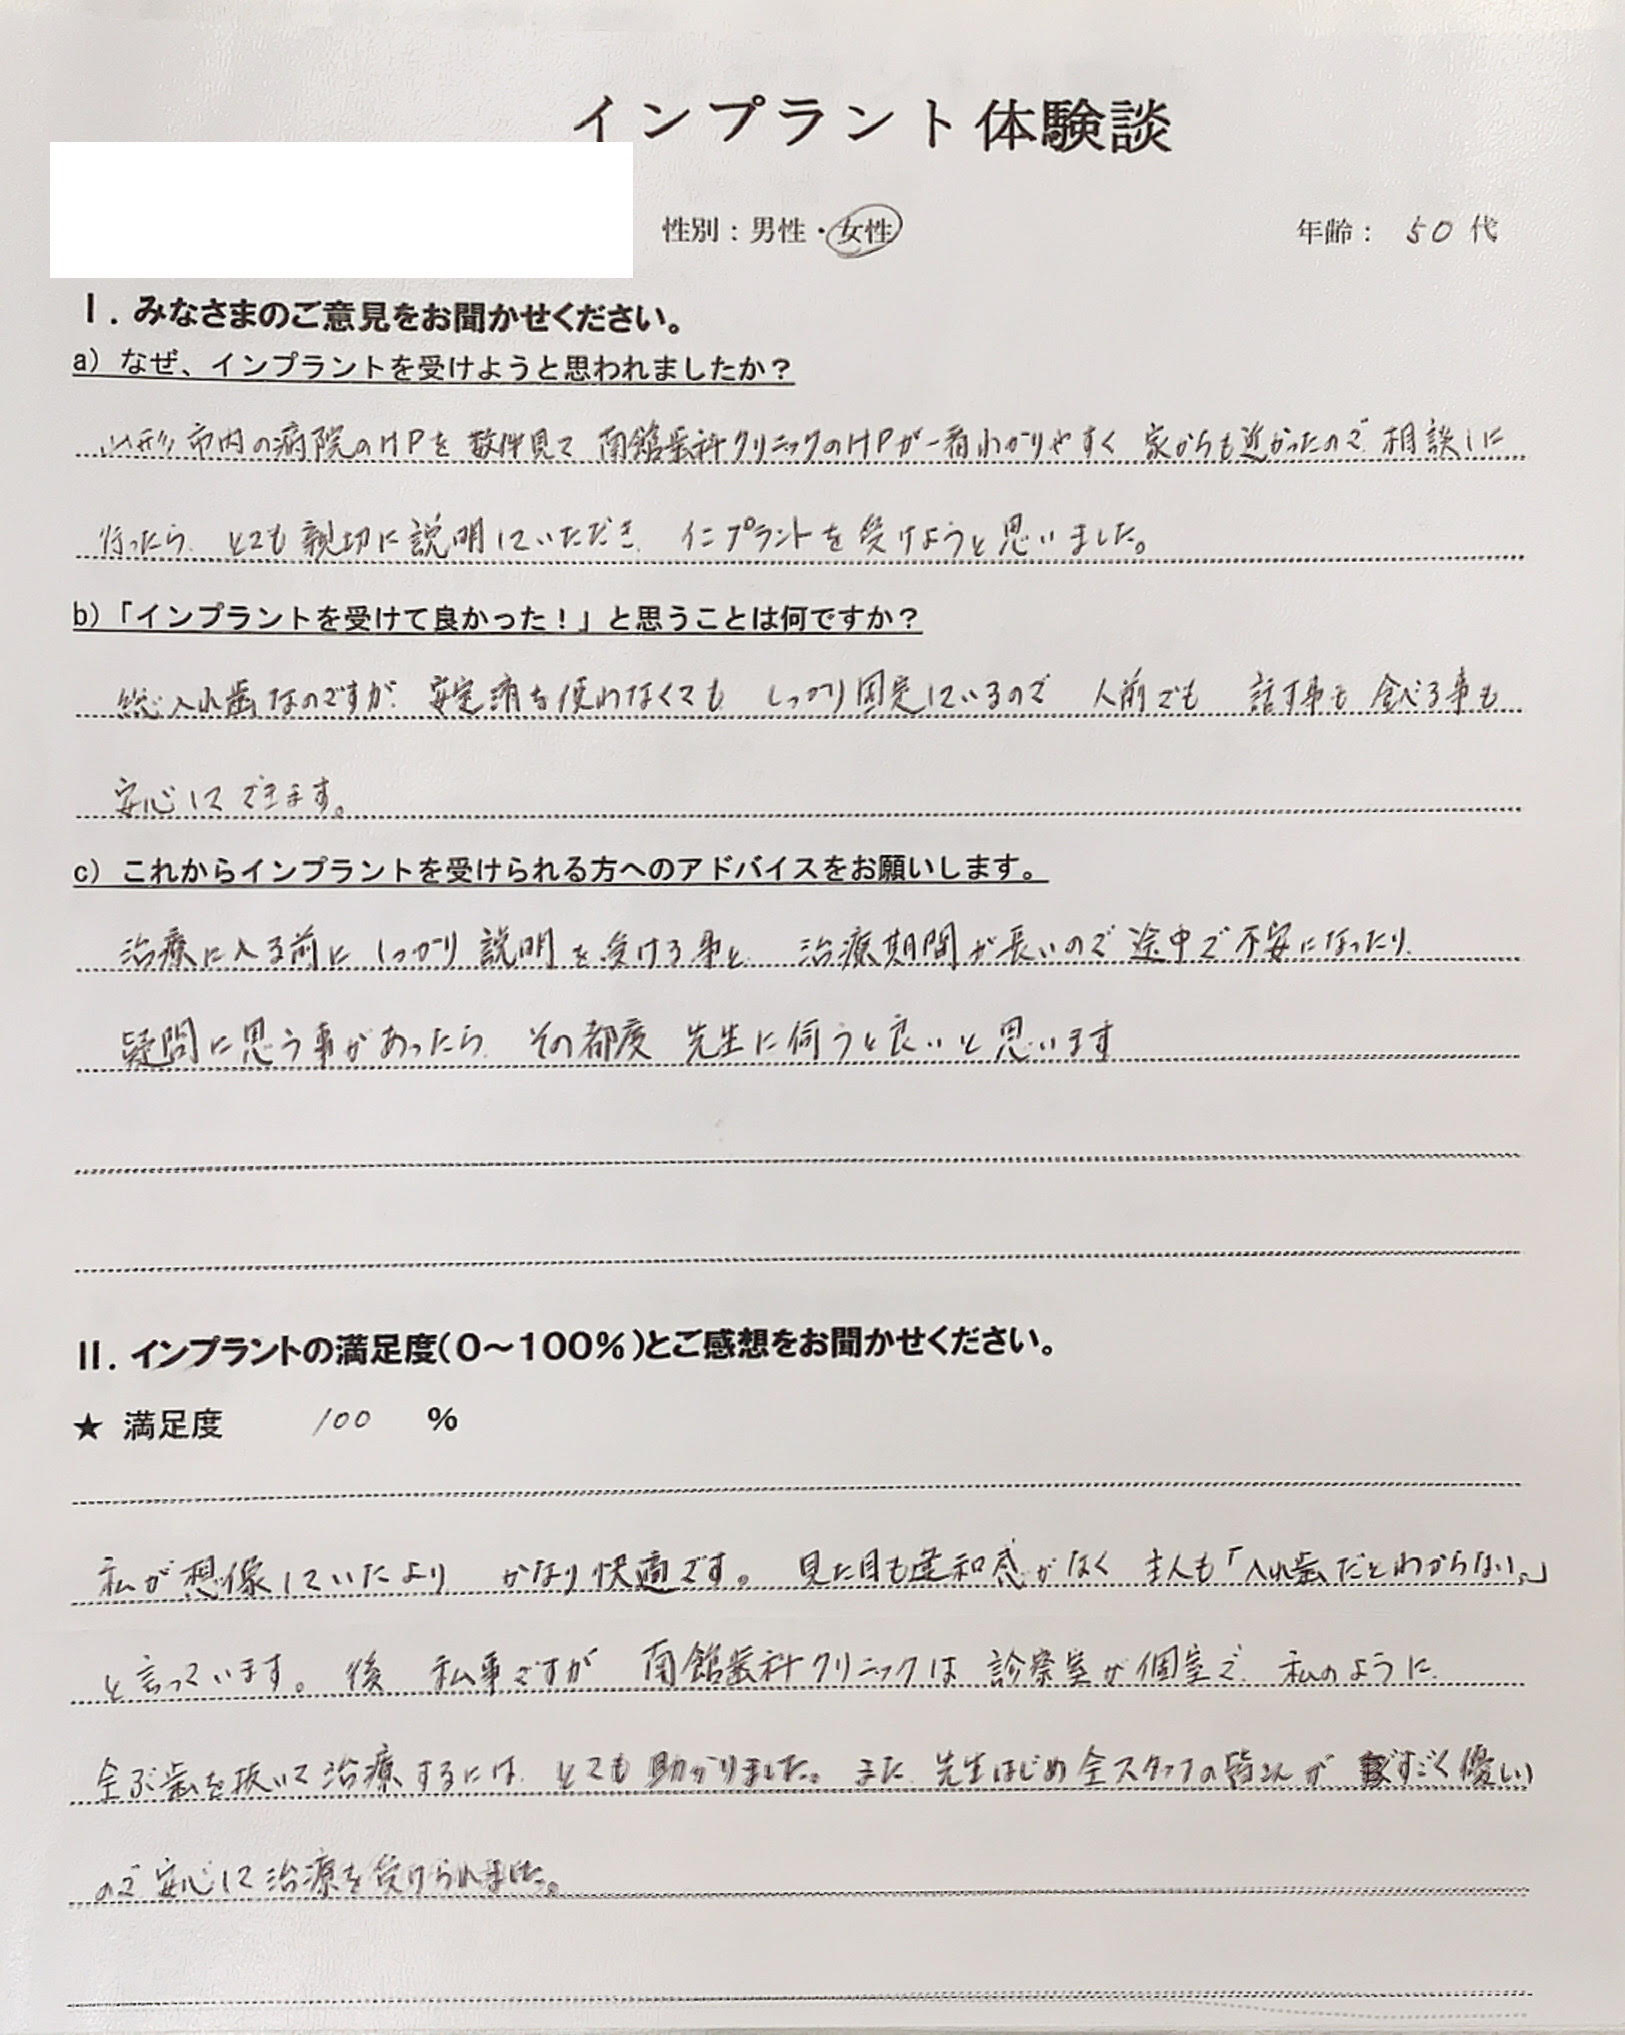 インプラント体験談
性別：男性・女性
年齢： 50 代
Ⅰ．みなさまのご意見をお聞かせください。
a）なぜ、インプラントを受けようと思われましたか？
山形市内の病院のHPを数件見て 南館歯科クリニックのHPが一番わかりやすく 家からも近かったので 相談しに
行ったら、とても親切に説明していただき、インプラントを受けようと思いました。
b）「インプラントを受けて良かった！」と思うことは何ですか？
総入れ歯なのですが、安定剤を使わなくても しっかり固定しているので 人前でも 話す事も 食べる事も
安心してできます。
c）これからインプラントを受けられる方へのアドバイスをお願いします。
治療に入る前に しっかり説明を受ける事と、治療期間が長いので途中で不安になったり、
疑問に思う事があったら、その都度 先生に伺うと良いと思います
Ⅱ．インプラントの満足度（0～100％）とご感想をお聞かせください。
★ 満足度 100 ％
私が想像していたより かなり快適です。見た目も違和感がなく 主人も「入れ歯だとわからない。」
と言っています。後 私事ですが 南館歯科クリニックは 診察室が個室で、私のように、
全ぶ歯を抜いて治療するには、とても助かりました。また、先生はじめ全スタッフの皆さんが すごく優しい
ので安心して治療を受けられました。